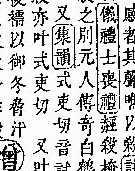 感者其聲噍以
儀禮士喪禮經殺掩
之別元人傳奇白鶴
又集韻式吏切音試
亦叶式吏切 又叶
襦以御冬脅汗